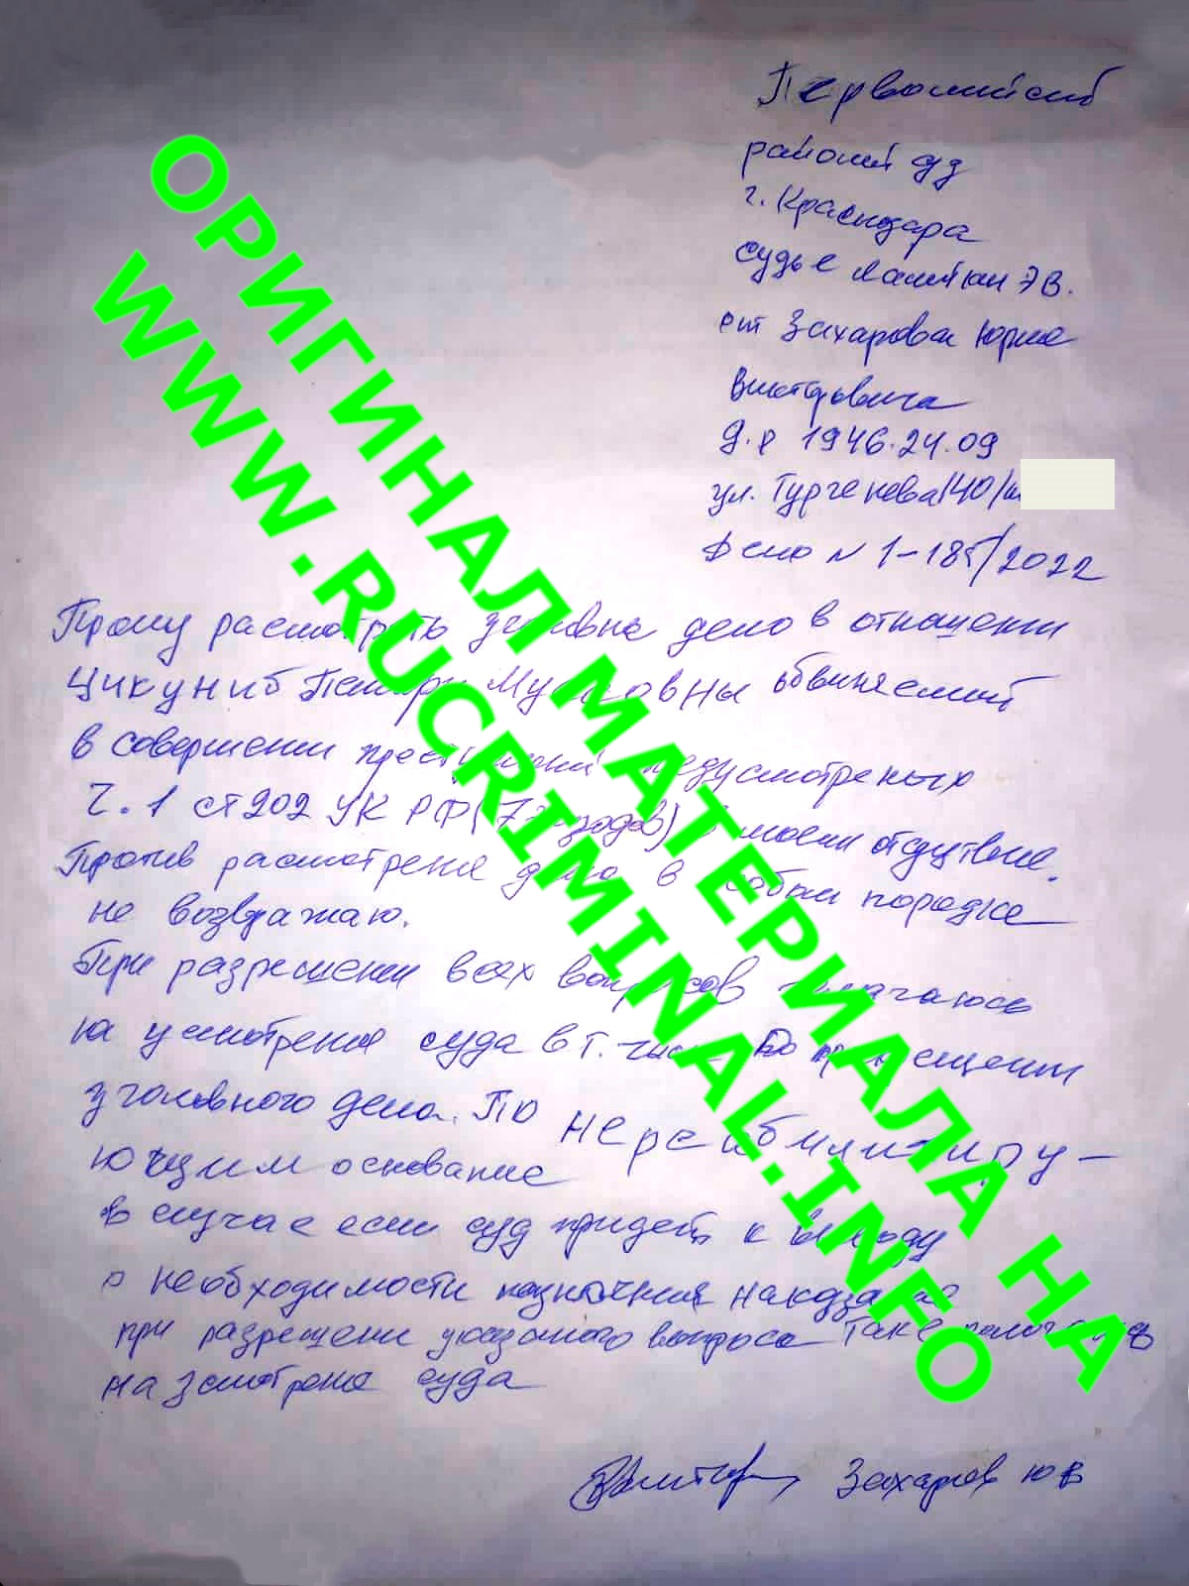 Первомайский
районный суд
г. Краснодара
судье Э В.
от Захарова Юрия
Викторовича
д.р 1946.24.09
ул. Тургенева 140/
Дело N 1-185/2022
Прошу расмотреть дело в отношении
Цикуниб обвиняемой
в совершении предусмотреных
Ч. 1 ст 202 УК РФ в моем отсутствие.
Против расмотрение дела в особом порядке
не возвражаю.
При разрешении всех вопросов полагаюсь
на усмотрения суда в т. числе
уголовного дела. По нереабилитиру-
ющим основание
в случае если суд придеть к выводу
о необходимости назначения наказание
при разрешени указаного вопроса
на усмотрение суда
Захаров Ю В
ОРИГИНАЛ МАТЕРИАЛА НА
WWW.RUCRIMINAL.INFO